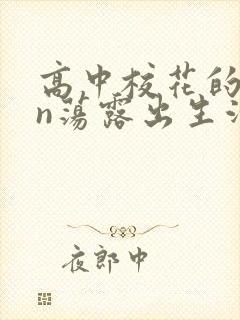 高中校花的
n荡露出生
夜郎中